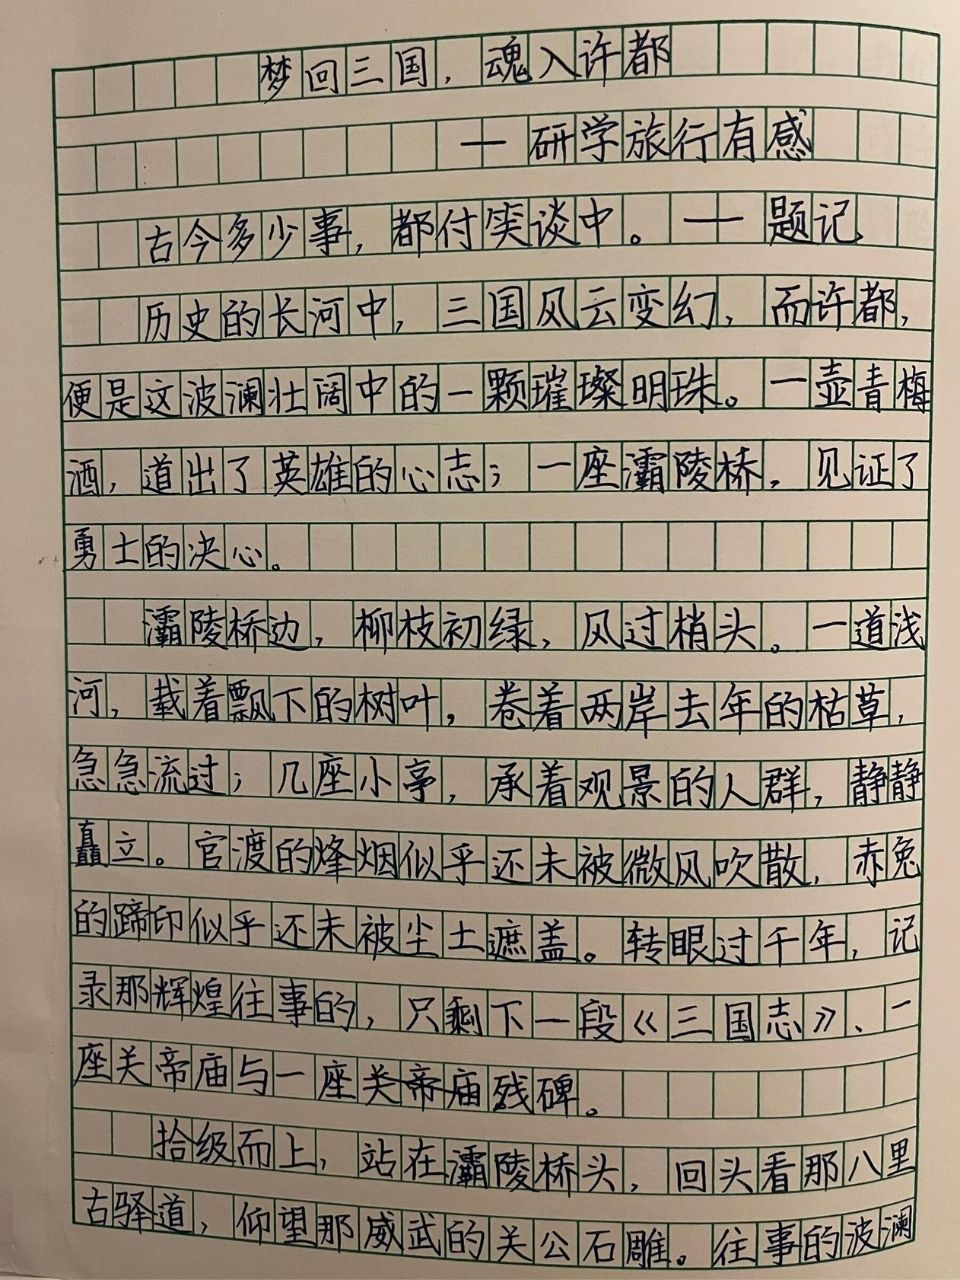 梦回三国，魂入许都
— 研学旅行有感
古今多少事，都付笑谈中。— 题记
历史的长河中，三国风云变幻，而许都，
便是这波澜壮阔中的一颗璀璨明珠。一壶青梅
酒，道出了英雄的心志；一座灞陵桥，见证了
勇士的决心。
灞陵桥边，柳枝初绿，风过梢头。一道浅
河，载着飘下的树叶，卷着两岸去年的枯草，
急急流过；几座小亭，承着观景的人群，静静
矗立。官渡的烽烟似乎还未被微风吹散，赤兔
的蹄印似乎还未被尘土遮盖。转眼过千年，记
录那辉煌往事的，只剩下一段《三国志》、一
座关帝庙与一座关帝庙残碑。
拾级而上，站在灞陵桥头，回头看那八里
古驿道，仰望那威武的关公石雕。往事的波澜